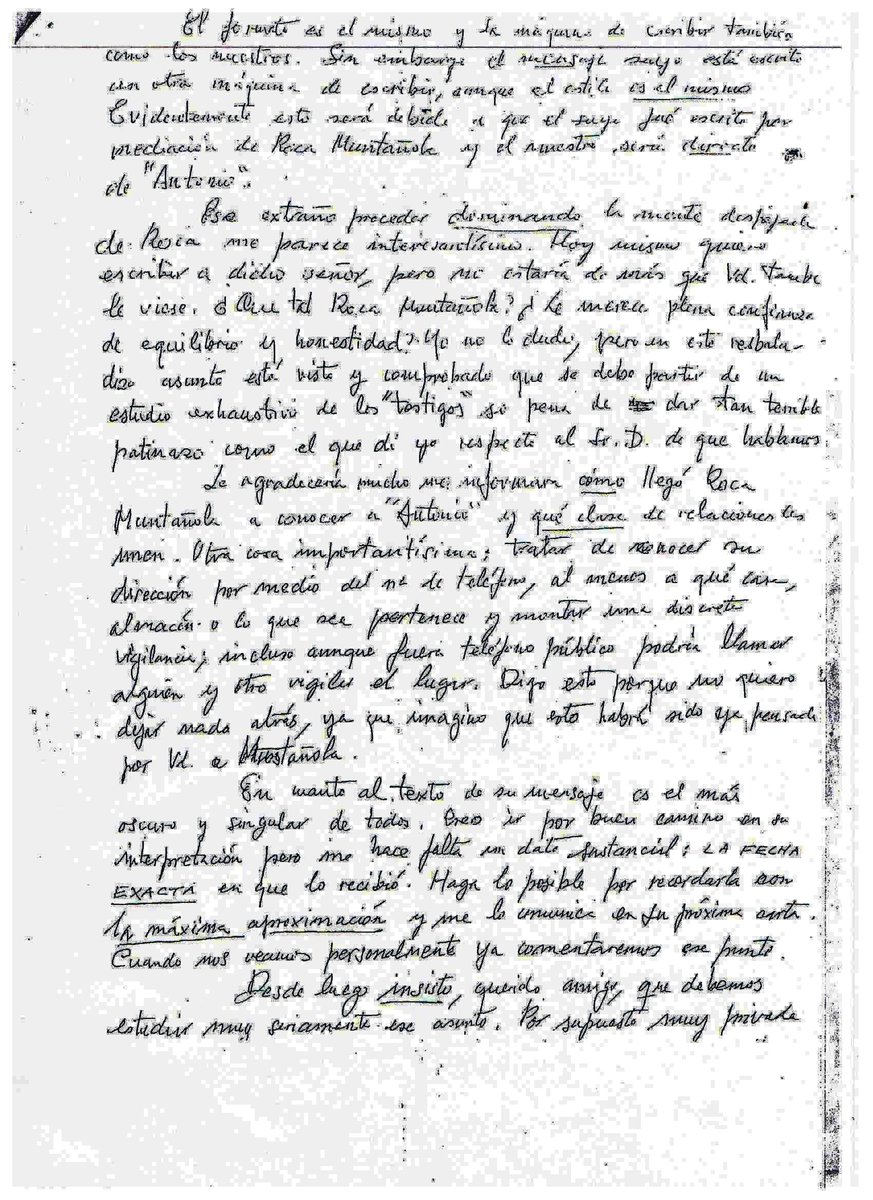 El formato es el mismo y la máquina de escribir también
como los nuestros. Sin embargo el mensaje suyo está escrito
con otra máquina de escribir, aunque el estilo es el mismo
Evidentemente esto será debido a que el suyo fué escrito por
mediación de Roca Muntañola y el nuestro será directo
de "Antonio".
Ese extraño proceder dominando la mente despejada
de Roca me parece interesantísimo. Hoy mismo quiero
escribir a dicho señor, pero no estaría de más que Vd. tambe
le viese. ¿Que tal Roca Muntañola? ¿Le merece plena confianza
de equilibrio y honestidad? Yo no lo dudo, pero en este resbala-
dizo asunto está visto y comprobado que se debe partir de un
estudio exhaustivo de los "tostigos" so pena de dar tan temible
patinazo como el que di yo respecto al Sr. D. de que hablamos
Le agradecería mucho me informara cómo llegó Roca
Muntañola a conocer a "Antonio" y qué clase de relaciones les
unen. Otra cosa importantísima: tratar de conocer su
dirección por medio del nº de teléfono, al menos a qué casa,
almacén o lo que sea pertenece y montar una discreta
vigilancia; incluso aunque fuera teléfono público podría llamar
alguien y otro vigilar el lugar. Digo esto porque no quiero
dejar nada atrás, ya que imagino que esto habrá sido ya pensado
por Vd. o Muntañola.
En cuanto al texto de su mensaje es el más
oscuro y singular de todos. Creo ir por buen camino en su
interpretación pero me hace falta un dato sustancial: LA FECHA
EXACTA en que lo recibió. Haga lo posible por recordarla con
la máxima aproximación y me lo comunica en su próxima carta.
Cuando nos veamos personalmente ya comentaremos ese punto.
Desde luego insisto, querido amigo, que debemos
estudiar muy seriamente ese asunto. Por supuesto muy privada